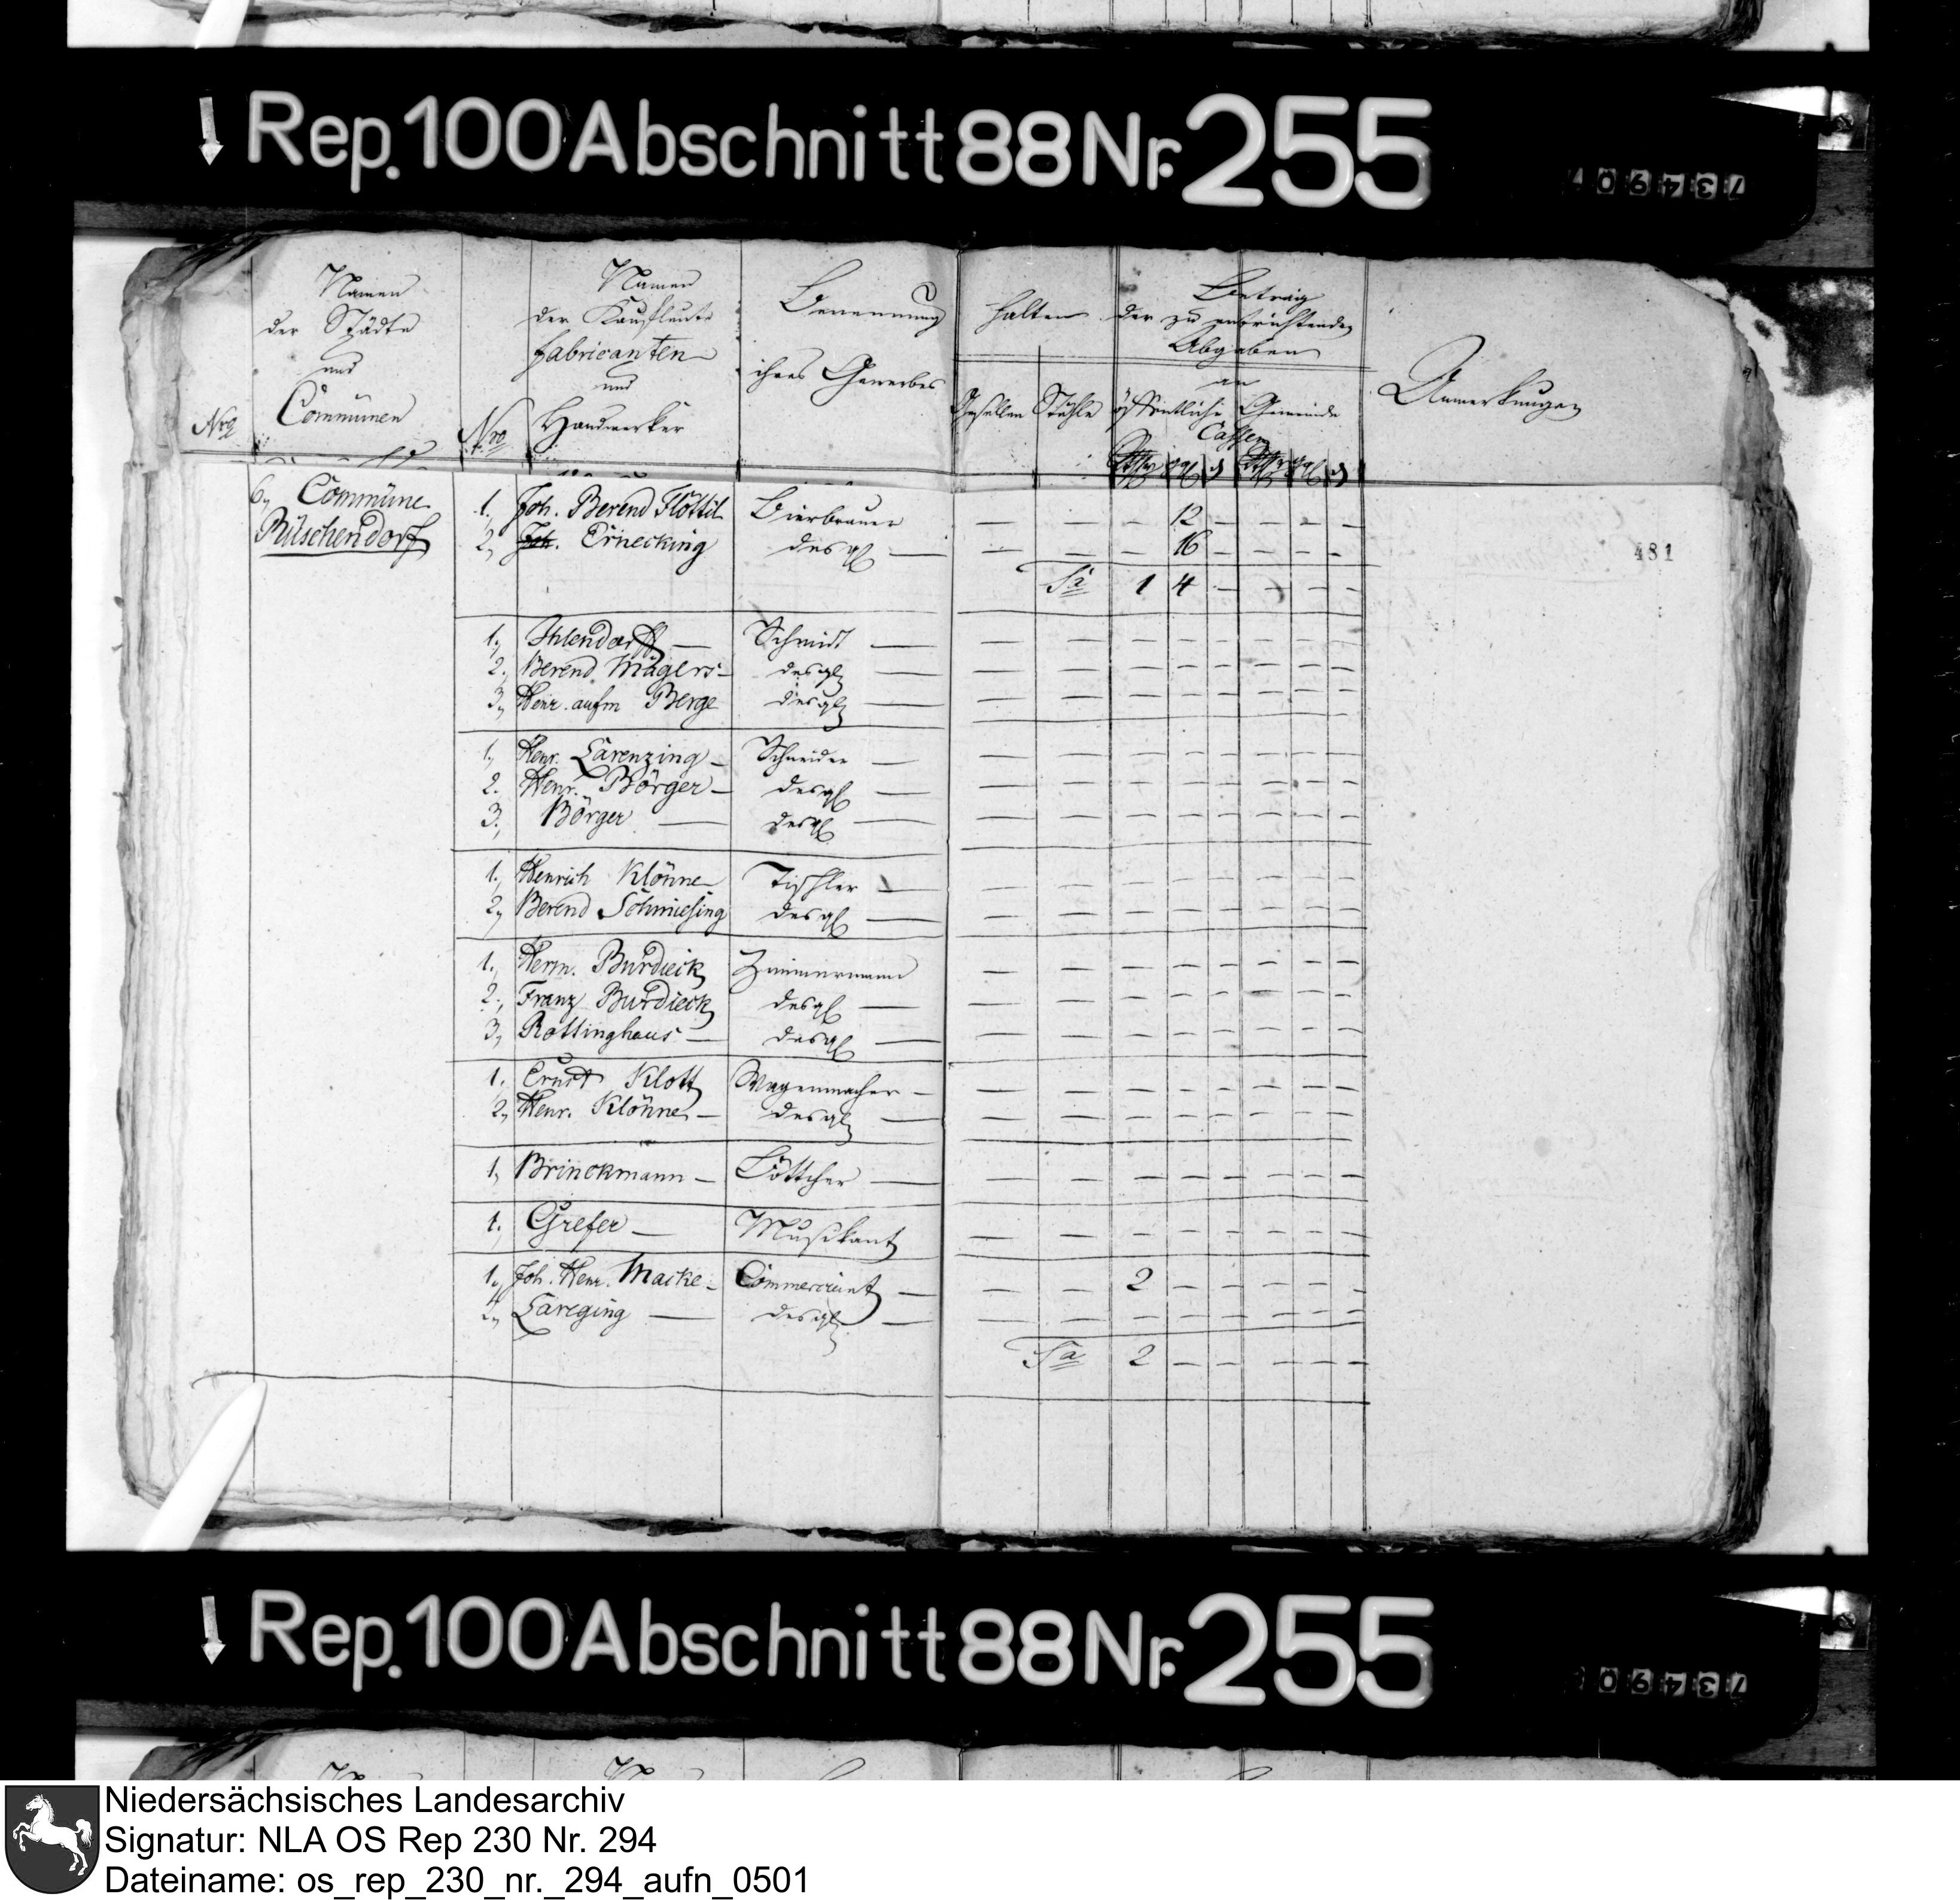 Rep. 100 Abschnitt 88 Nr. 255
734907
Namen
der Städte
und
Communen
Nro
Nro
Namen
der Kaufleute
Fabricanten
und
Handwerker
Benennung
ihres Gewerbes
halten
Gesellen Stühle
Betrag
der zu entrichtenden
Abgaben
an
öffentliche Gemeinde
Cassen
Anmerkungen
6, Commüne
Rüschendorf
1, Joh. Berend Flöttil Bierbrauer — — — 12 — — — —
2, Joh. Ernecking desgl — — — 16 — — — —
Sa 1 4 — — — —
481
1, Ihlendorff — Schmidt —
2, Berend Mägers — desgl —
3, Henr. aufm Berge desgl —
1, Henr. Lärenzing — Schneider —
2. Henr. Börger — desgl —
3, Börger — desgl —
1, Henrich Klönne Tischler —
2, Berend Schmiesing desgl —
1, Herm. Burdieck Zimmermann
2, Franz Burdieck desgl —
3, Rottinghaus — desgl —
1. Ernst Klott Wagenmacher —
2, Henr. Klönne — desgl —
1, Brinckmann — Böttcher —
1. Grefer — Musikant
1, Joh. Henr. Macke — Commerciant — — — 2 — — — — —
2, Läreging — desgl —
Sa 2 — — — — —
Rep. 100 Abschnitt 88 Nr. 255
73490
Niedersächsisches Landesarchiv
Signatur: NLA OS Rep 230 Nr. 294
Dateiname: os_rep_230_nr._294_aufn_0501